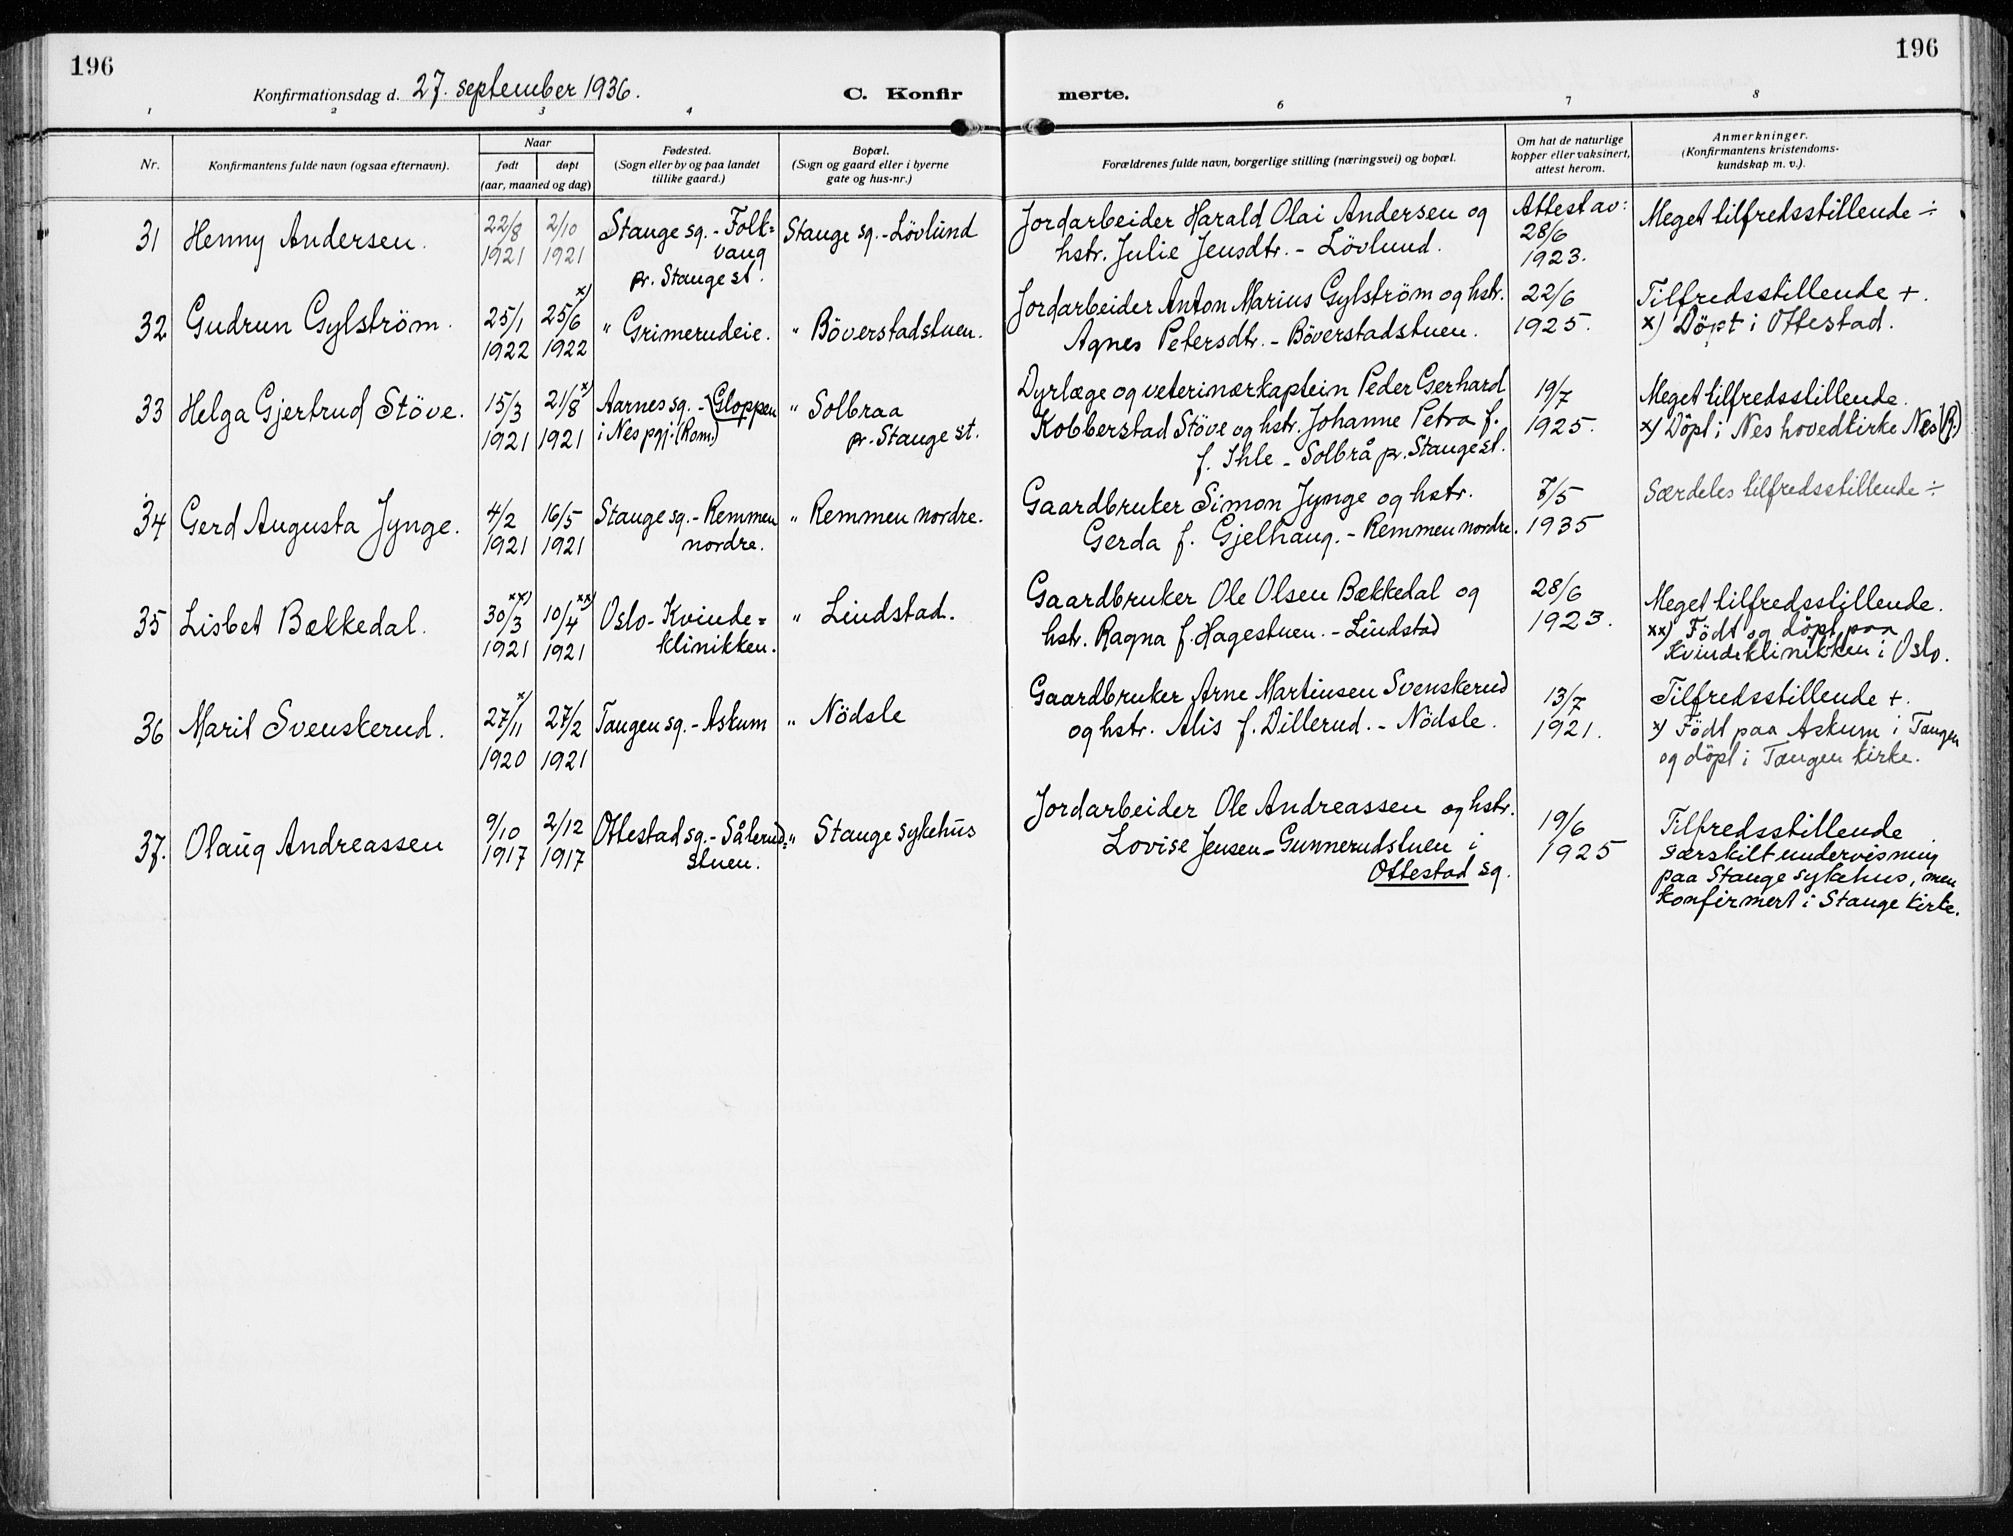 196
196
Konfirmationsdag d. 27. september 1936.
C. Konfir
merte.
1 2 3 4 6 7 8
Nr.
Konfirmantens fulde navn (ogsaa efternavn).
Naar
født døpt
(aar, maaned og dag)
Fødested.
(Sogn eller by og paa landet
tillike gaard.)
Bopæl.
(Sogn og gaard eller i byerne
gate og hus-nr.)
Forældrenes fulde navn, borgerlige stilling (næringsvei) og bopæl.
Om hat de naturlige
kopper eller vaksinert,
attest herom.
Anmerkninger.
(Konfirmantens kristendoms-
kundskap m. v.).
31 Henny Andersen.
22/8 1921
2/10 1921
Stange sg. - Folk=
vang
pr. Stange st.
Stange sg. - Lövlund
Jordarbeider Harald Olai Andersen og
hstr. Julie Jensdtr. - Lövlund.
Attest av:
28/6
1923.
Meget tilfredsstillende ÷
32 Gudrun Gylström.
25/1 1922
25/6 x) 1922
" Grimerudeie.
" Böverstadstuen.
Jordarbeider Anton Marius Gylström og hstr.
Agnes Petersdtr. - Böverstadstuen.
22/6
1925.
Tilfredsstillende +.
x) Döpt i Ottestad.
33 Helga Gjertrud Stöve.
15/3 1921
21/8 x) 1921
Aarnes sg. - Gloppen
i Nes pgj. (Rom.)
" Solbraa
pr. Stange st.
Dyrlæge og veterinærkaptein Peder Gerhard
Kobberstad Stöve og hstr. Johanne Petra f.
f. Ihle - Solbrå pr. Stange st.
19/7
1925.
Meget tilfredsstillende.
x) Döpt i Nes hovedkirke Nes (R.)
34 Gerd Augusta Jynge.
4/2 1921
16/5 1921
Stange sg. - Remmen
nordre.
" Remmen nordre.
Gaardbruker Simon Jynge og hstr.
Gerda f. Gjelhaug. - Remmen nordre.
7/5
1935
Særdeles tilfredsstillende ÷
35 Lisbet Bækkedal.
30/3 xx) 1921
10/4 xx) 1921
Oslo - Kvinde=
klinikken.
" Lindstad.
Gaardbruker Ole Olsen Bækkedal og
hstr. Ragna f. Hagestuen. - Lindstad
28/6
1923.
Meget tilfredsstillende.
xx) Födt og döpt paa
Kvindeklinikken i Oslo.
36 Marit Svenskerud.
27/11 x) 1920
27/2 1921
Tangen sg. - Askum
" Nödsle
Gaardbruker Arne Martinsen Svenskerud
og hstr. Alis f. Dillerud. - Nödsle.
13/7
1921.
Tilfredsstillende +.
x) Födt paa Askum i Tangen
og döpt i Tangen kirke.
37. Olaug Andreassen
9/10 1917
2/12 1917
Ottestad sg. - Sålerud=
stuen.
" Stange sykehus
Jordarbeider Ole Andreassen og hstr.
Lovise Jensen - Gunnerudstuen i
Ottestad sg.
19/6
1925
Tilfredsstillende
særskilt undervisning
paa Stange sykehus, men
konfirmert i Stange kirke.